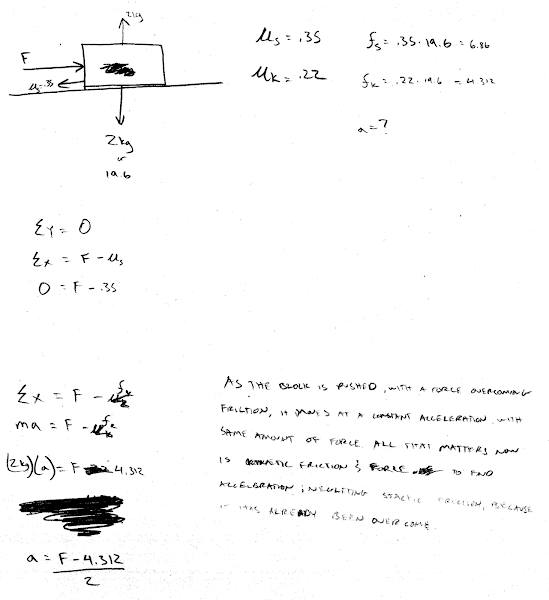 2kg
F
μs=.35
2kg
or
19.6
μs = .35
μk = .22
fs = .35 · 19.6 = 6.86
fk = .22 · 19.6 = 4.312
a = ?
Σy = 0
Σx = F - μs
0 = F - .35
Σx = F - fk
ma = F - fk
(2kg)(a) = F - 4.312
a = F - 4.312
2
AS THE BLOCK IS PUSHED, WITH A FORCE OVERCOMING
FRICTION, IT MOVES AT A CONSTANT ACCELERATION, WITH
SAME AMOUNT OF FORCE. ALL THAT MATTERS NOW
IS KINETIC FRICTION & FORCE TO FIND
ACCELERATION; NEGLECTING STATIC FRICTION, BECAUSE
IT HAS ALREADY BEEN OVERCOME.